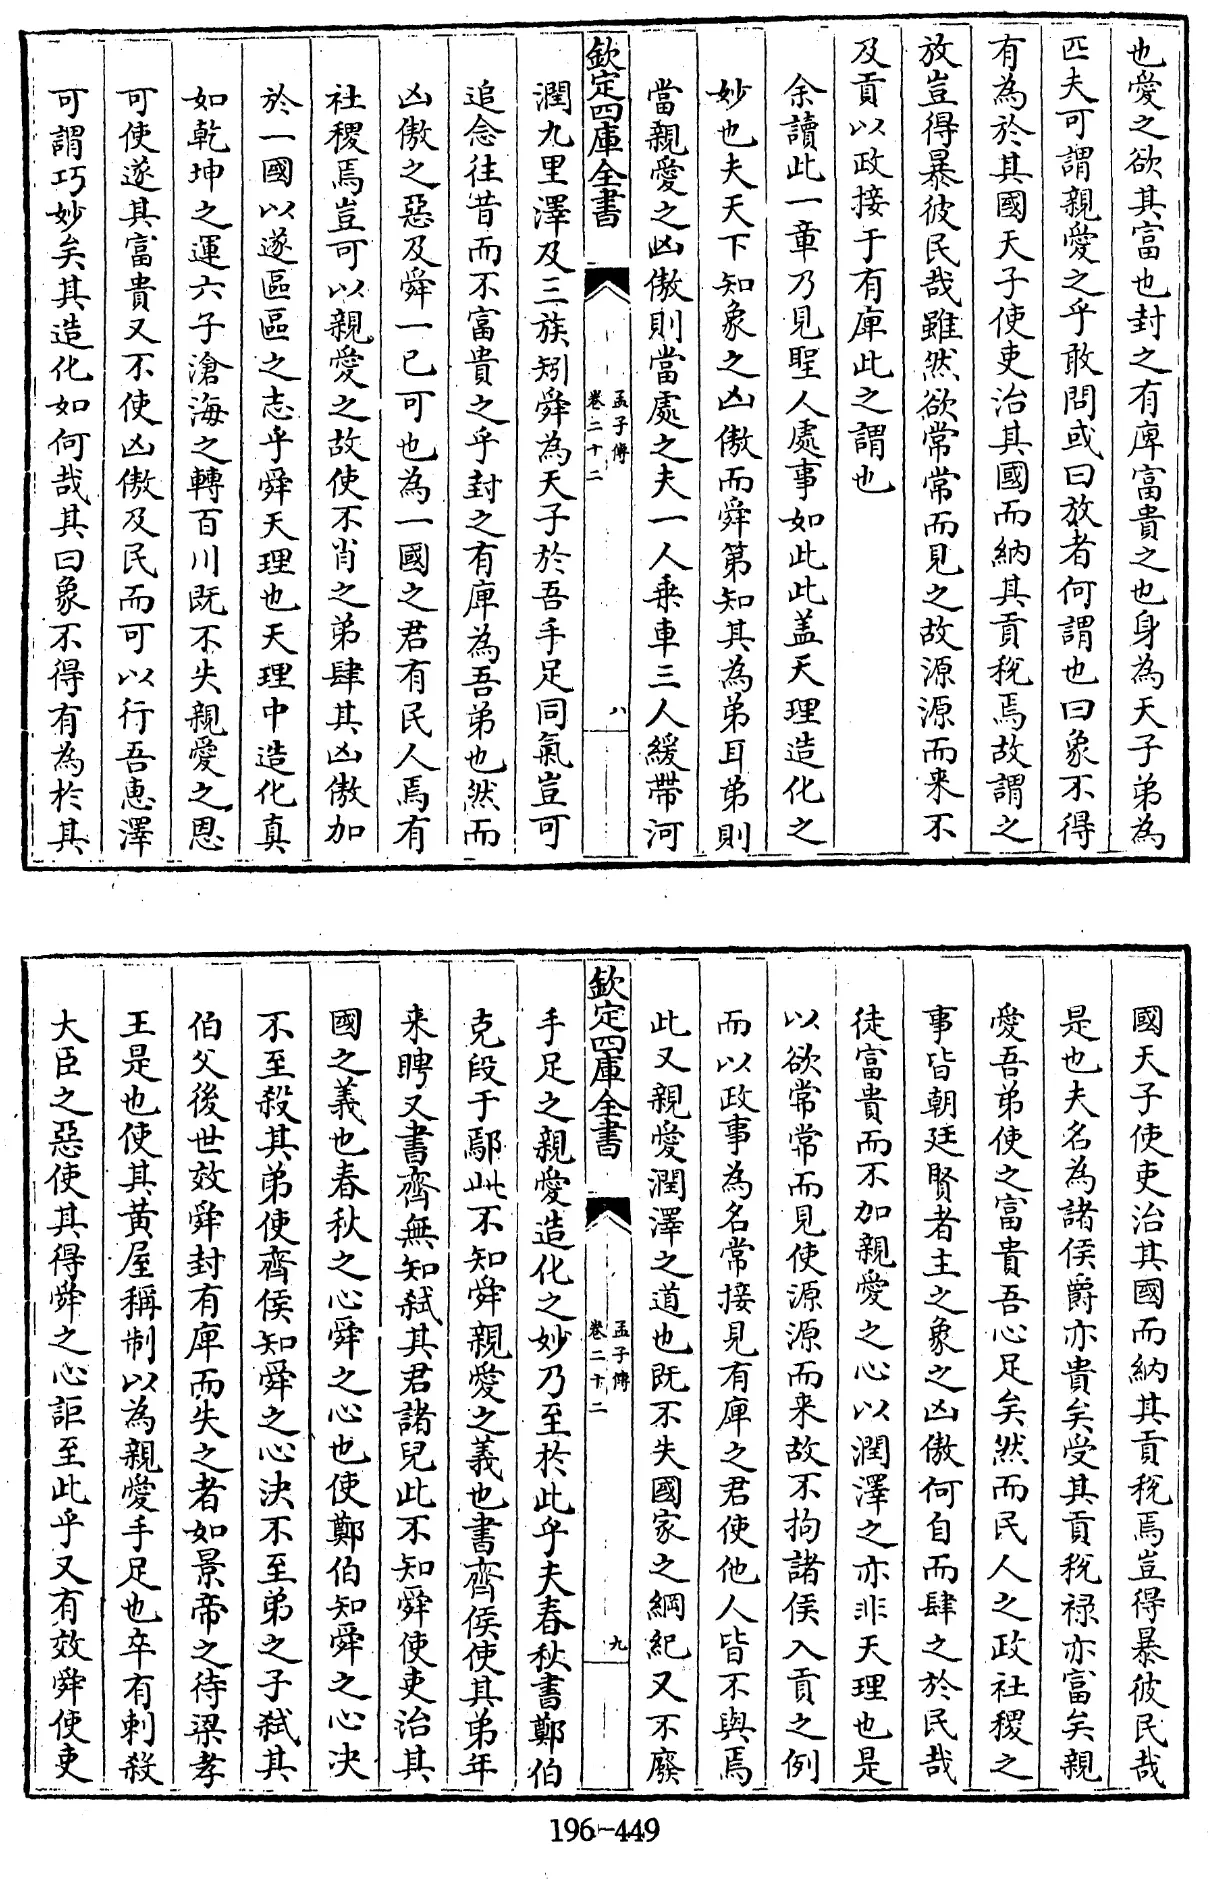 也愛之欲其富也封之有庳富貴之也身為天子弟為
匹夫可謂親愛之乎敢問或曰放者何謂也曰象不得
有為於其國天子使吏治其國而納其貢稅焉故謂之
放豈得暴彼民哉雖然欲常常而見之故源源而来不
及貢以政接于有庳此之謂也
余讀此一章乃見聖人處事如此此盖天理造化之
妙也夫天下知象之凶傲而舜第知其為弟耳弟則
當親愛之凶傲則當處之夫一人乗車三人緩帶河
欽定四庫全書
孟子傳
卷二十二
八
潤九里澤及三族矧舜為天子於吾手足同氣豈可
追念往昔而不富貴之乎封之有庳為吾弟也然而
凶傲之惡及舜一已可也為一國之君有民人焉有
社稷焉豈可以親愛之故使不肖之弟肆其凶傲加
於一國以遂區區之志乎舜天理也天理中造化真
如乾坤之運六子滄海之轉百川既不失親愛之恩
可使遂其富貴又不使凶傲及民而可以行吾惠澤
可謂巧妙矣其造化如何哉其曰象不得有為於其
國天子使吏治其國而納其貢稅焉豈得暴彼民哉
是也夫名為諸侯爵亦貴矣受其貢稅禄亦富矣親
愛吾弟使之富貴吾心足矣然而民人之政社稷之
事皆朝廷賢者主之象之凶傲何自而肆之於民哉
徒富貴而不加親愛之心以潤澤之亦非天理也是
以欲常常而見使源源而来故不拘諸侯入貢之例
而以政事為名常接見有庳之君使他人皆不與焉
此又親愛潤澤之道也既不失國家之綱紀又不廢
欽定四庫全書
孟子傳
卷二十二
九
手足之親愛造化之妙乃至於此乎夫春秋書鄭伯
克段于鄢此不知舜親愛之義也書齊侯使其弟年
来聘又書齊無知弑其君諸兒此不知舜使吏治其
國之義也春秋之心舜之心也使鄭伯知舜之心决
不至殺其弟使齊侯知舜之心决不至弟之子弑其
伯父後世效舜封有庳而失之者如景帝之待梁孝
王是也使其黄屋稱制以為親愛手足也卒有刺殺
大臣之惡使其得舜之心詎至此乎又有效舜使吏
196-449